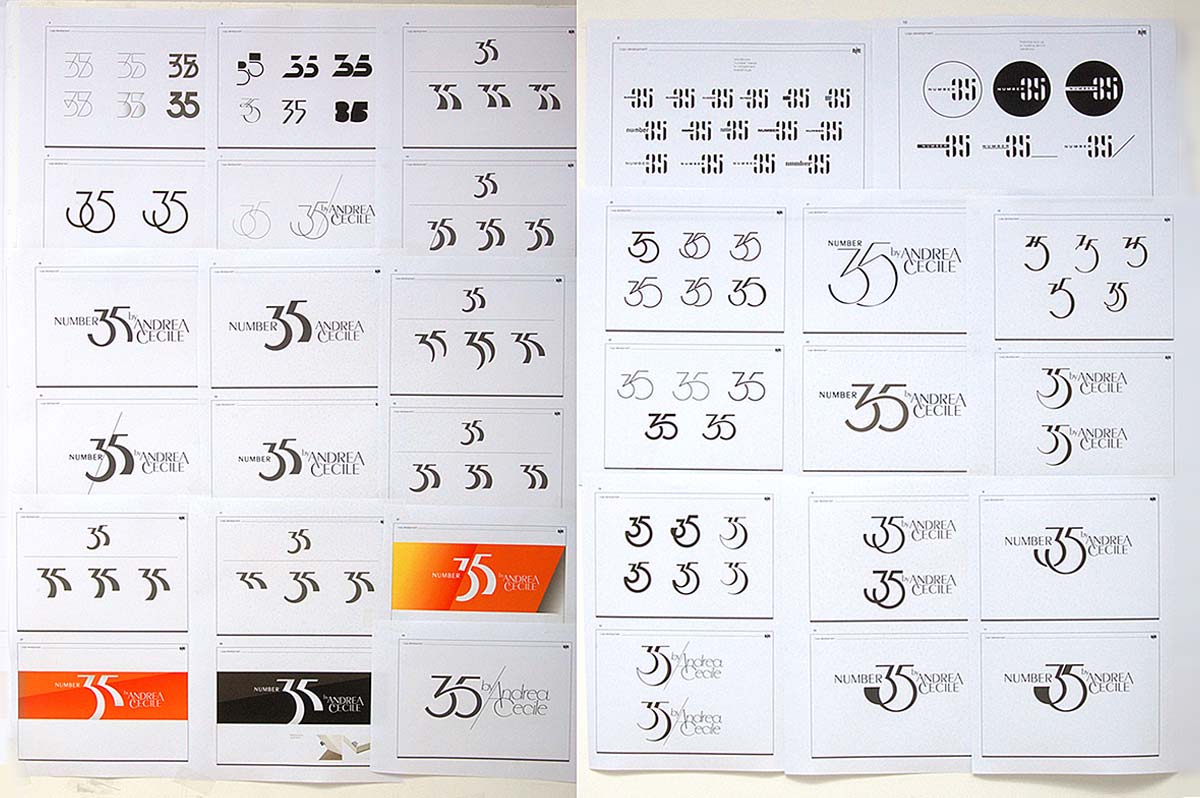 Logo development
35 35 35
35 35 35
Logo development
35 35 35
35 35 35
35
35 35 35
Logo development
35 35
35 by ANDREA
CECILE
35
35 35 35
NUMBER 35 by ANDREA
CECILE
NUMBER 35 ANDREA
CECILE
35
35 35 35
NUMBER 35 by ANDREA
CECILE
NUMBER 35 by ANDREA
CECILE
35
35 35 35
35
35 35 35
35
35 35 35
NUMBER 35 by ANDREA
CECILE
NUMBER 35 by ANDREA
CECILE
NUMBER 35 by ANDREA
CECILE
35 by Andrea
Cecile
Logo development
35 35 35 35 35 35
number 35 35 35 NUMBER 35 NUMBER 35
NUMBER 35 NUMBER 35 NUMBER 35 number 35
Logo development
NUMBER 35 NUMBER 35 NUMBER 35
NUMBER 35 NUMBER 35 NUMBER 35
35 35 35
35 35 35
NUMBER 35 by ANDREA
CECILE
35 35 35
35 35
35 35 35
35 35
NUMBER 35 by ANDREA
CECILE
35 by ANDREA
CECILE
35 by ANDREA
CECILE
35 35 35
35 35 35
35 by ANDREA
CECILE
35 by ANDREA
CECILE
NUMBER 35 by ANDREA
CECILE
35 by Andrea
Cecile
35 by Andrea
Cecile
NUMBER 35 by ANDREA
CECILE
NUMBER 35 by ANDREA
CECILE